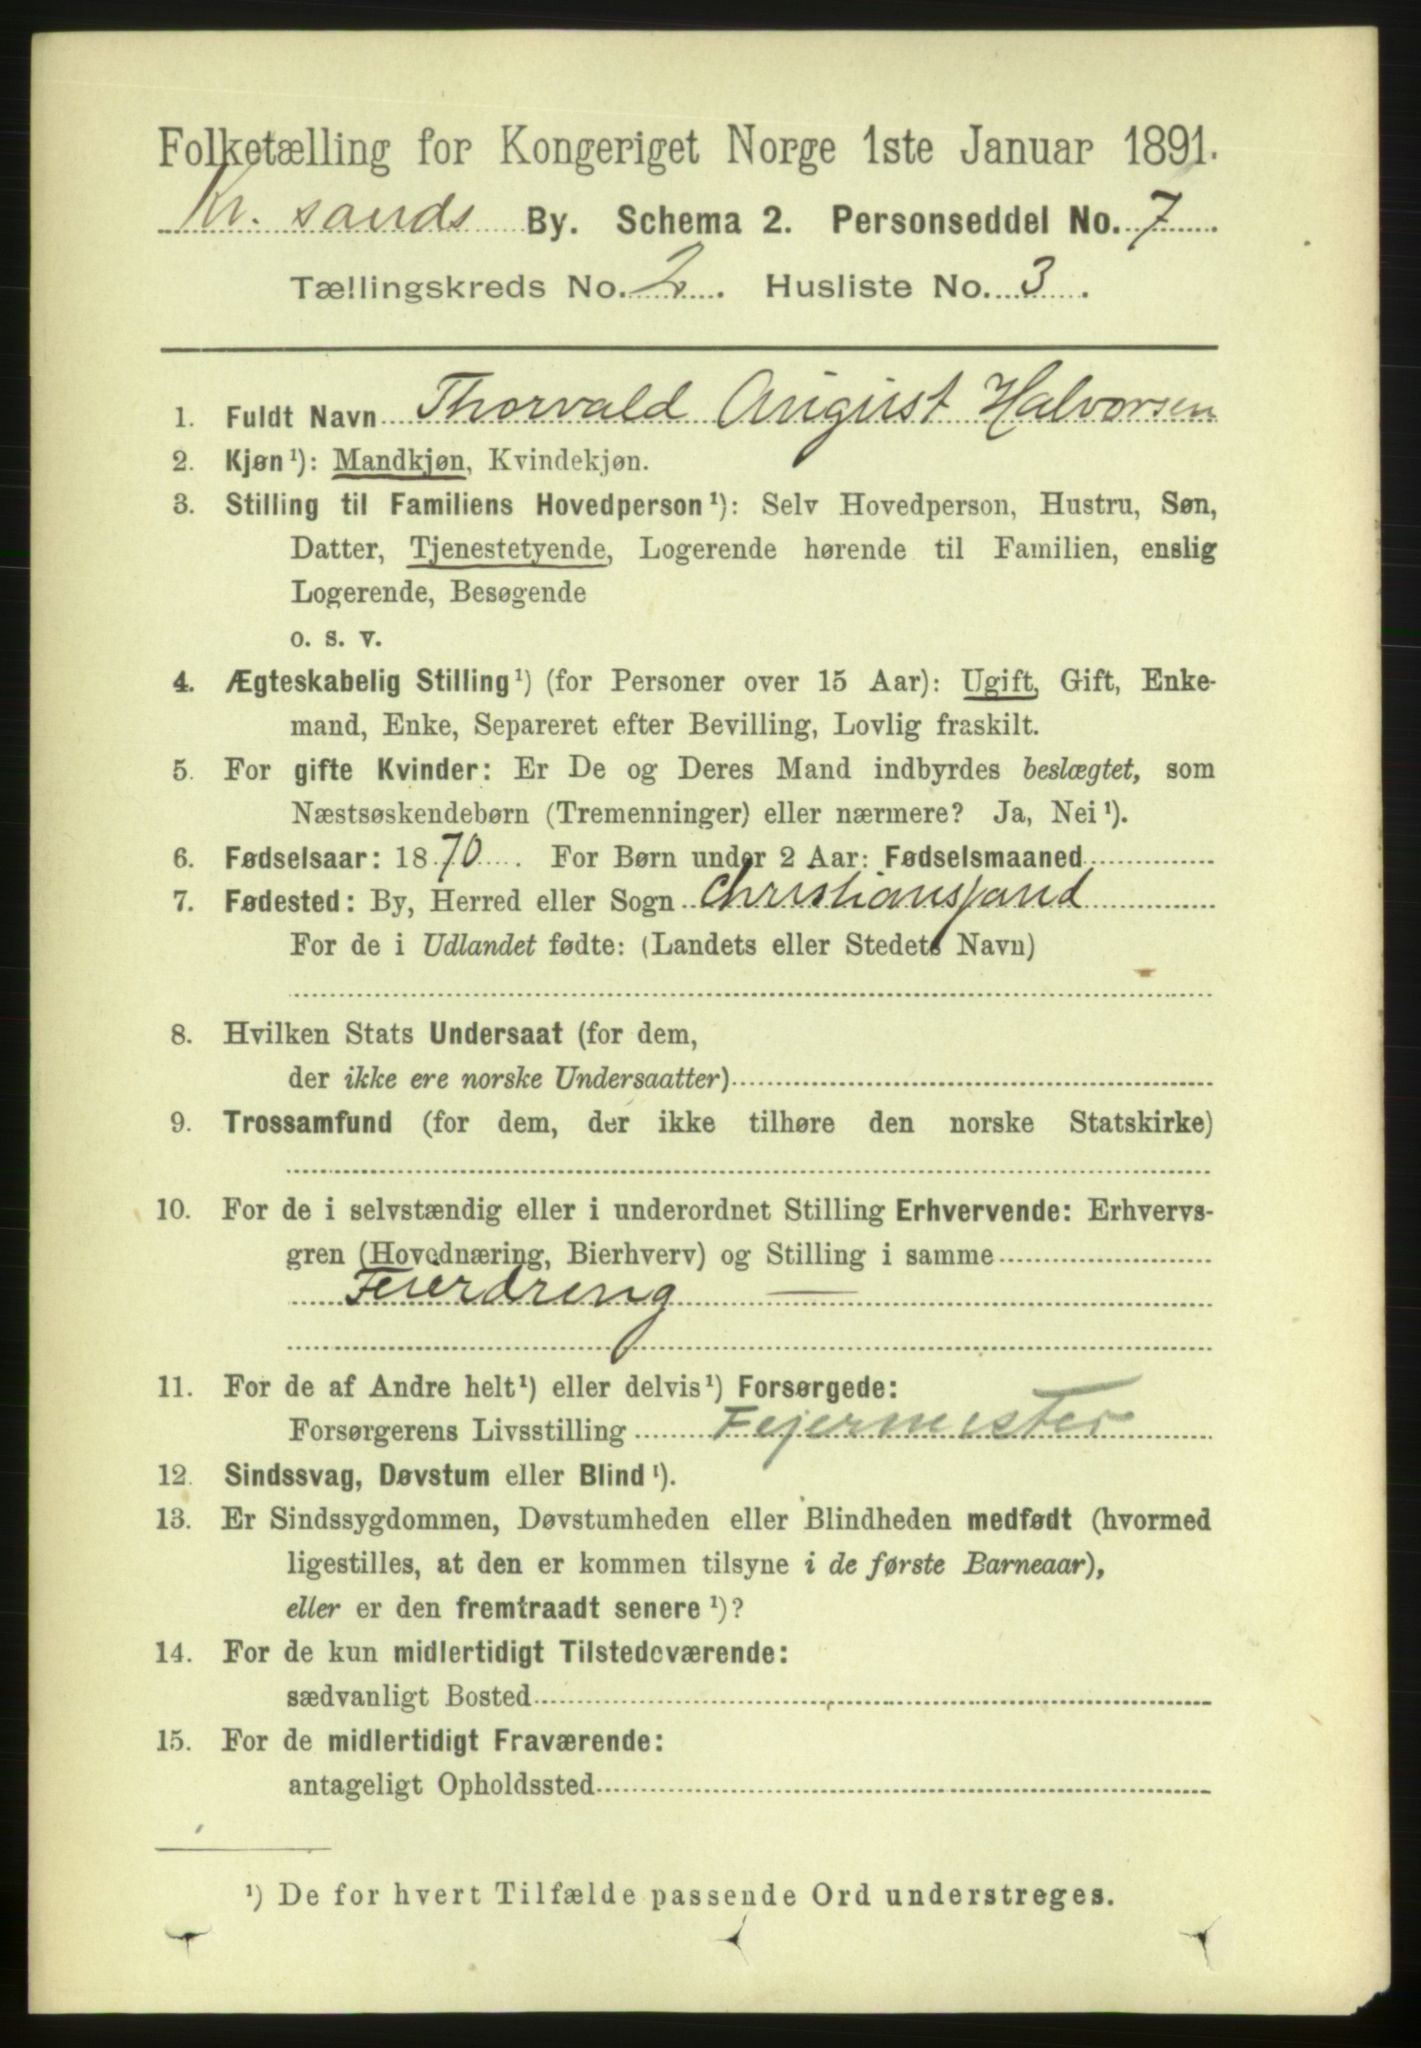 Folketælling for Kongeriget Norge 1ste Januar 1891.
Kr. sands By. Schema 2. Personseddel No. 7
Tællingskreds No. 2. Husliste No. 3.
1. Fuldt Navn Thorvald August Halvorsen
2. Kjøn¹): Mandkjøn, Kvindekjøn.
3. Stilling til Familiens Hovedperson¹): Selv Hovedperson, Hustru, Søn,
Datter, Tjenestetyende, Logerende hørende til Familien, enslig
Logerende, Besøgende
o. s. v.
4. Ægteskabelig Stilling¹) (for Personer over 15 Aar): Ugift, Gift, Enke-
mand, Enke, Separeret efter Bevilling, Lovlig fraskilt.
5. For gifte Kvinder: Er De og Deres Mand indbyrdes beslægtet, som
Næstsøskendebørn (Tremenninger) eller nærmere? Ja, Nei¹).
6. Fødselsaar: 1870. For Børn under 2 Aar: Fødselsmaaned
7. Fødested: By, Herred eller Sogn Christianssand
For de i Udlandet fødte: (Landets eller Stedets Navn)
8. Hvilken Stats Undersaat (for dem,
der ikke ere norske Undersaatter)
9. Trossamfund (for dem, der ikke tilhøre den norske Statskirke)
10. For de i selvstændig eller i underordnet Stilling Erhvervende: Erhvervs-
gren (Hovednæring, Bierhverv) og Stilling i samme
Feierdreng —
11. For de af Andre helt¹) eller delvis¹) Forsørgede:
Forsørgerens Livsstilling Fejermester
12. Sindssvag, Døvstum eller Blind¹).
13. Er Sindssygdommen, Døvstumheden eller Blindheden medfødt (hvormed
ligestilles, at den er kommen tilsyne i de første Barneaar),
eller er den fremtraadt senere¹)?
14. For de kun midlertidigt Tilstedeværende:
sædvanligt Bosted
15. For de midlertidigt Fraværende:
antageligt Opholdssted
¹) De for hvert Tilfælde passende Ord understreges.